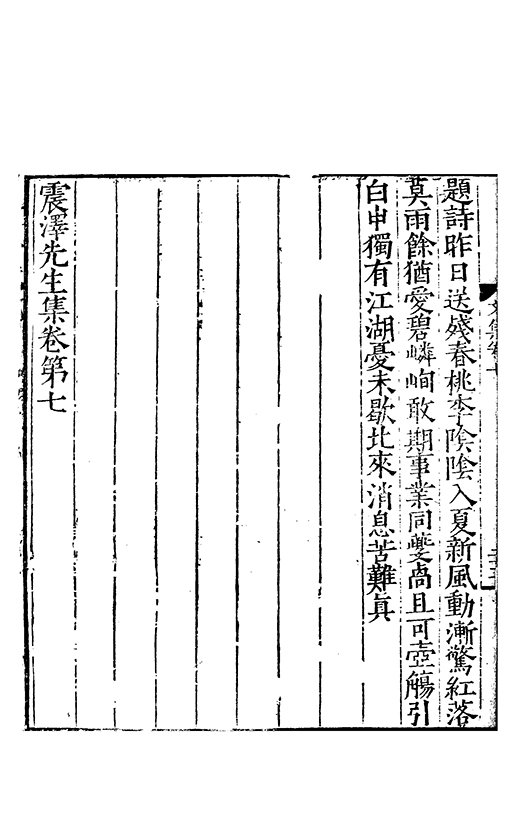 題詩昨日送殘春桃李陰陰入夏新風動漸驚紅落
莫雨餘猶愛碧嶙峋敢期事業同夔卨且可壺觴引
白申獨有江湖憂未歇比來消息苦難眞
震澤先生集卷第七